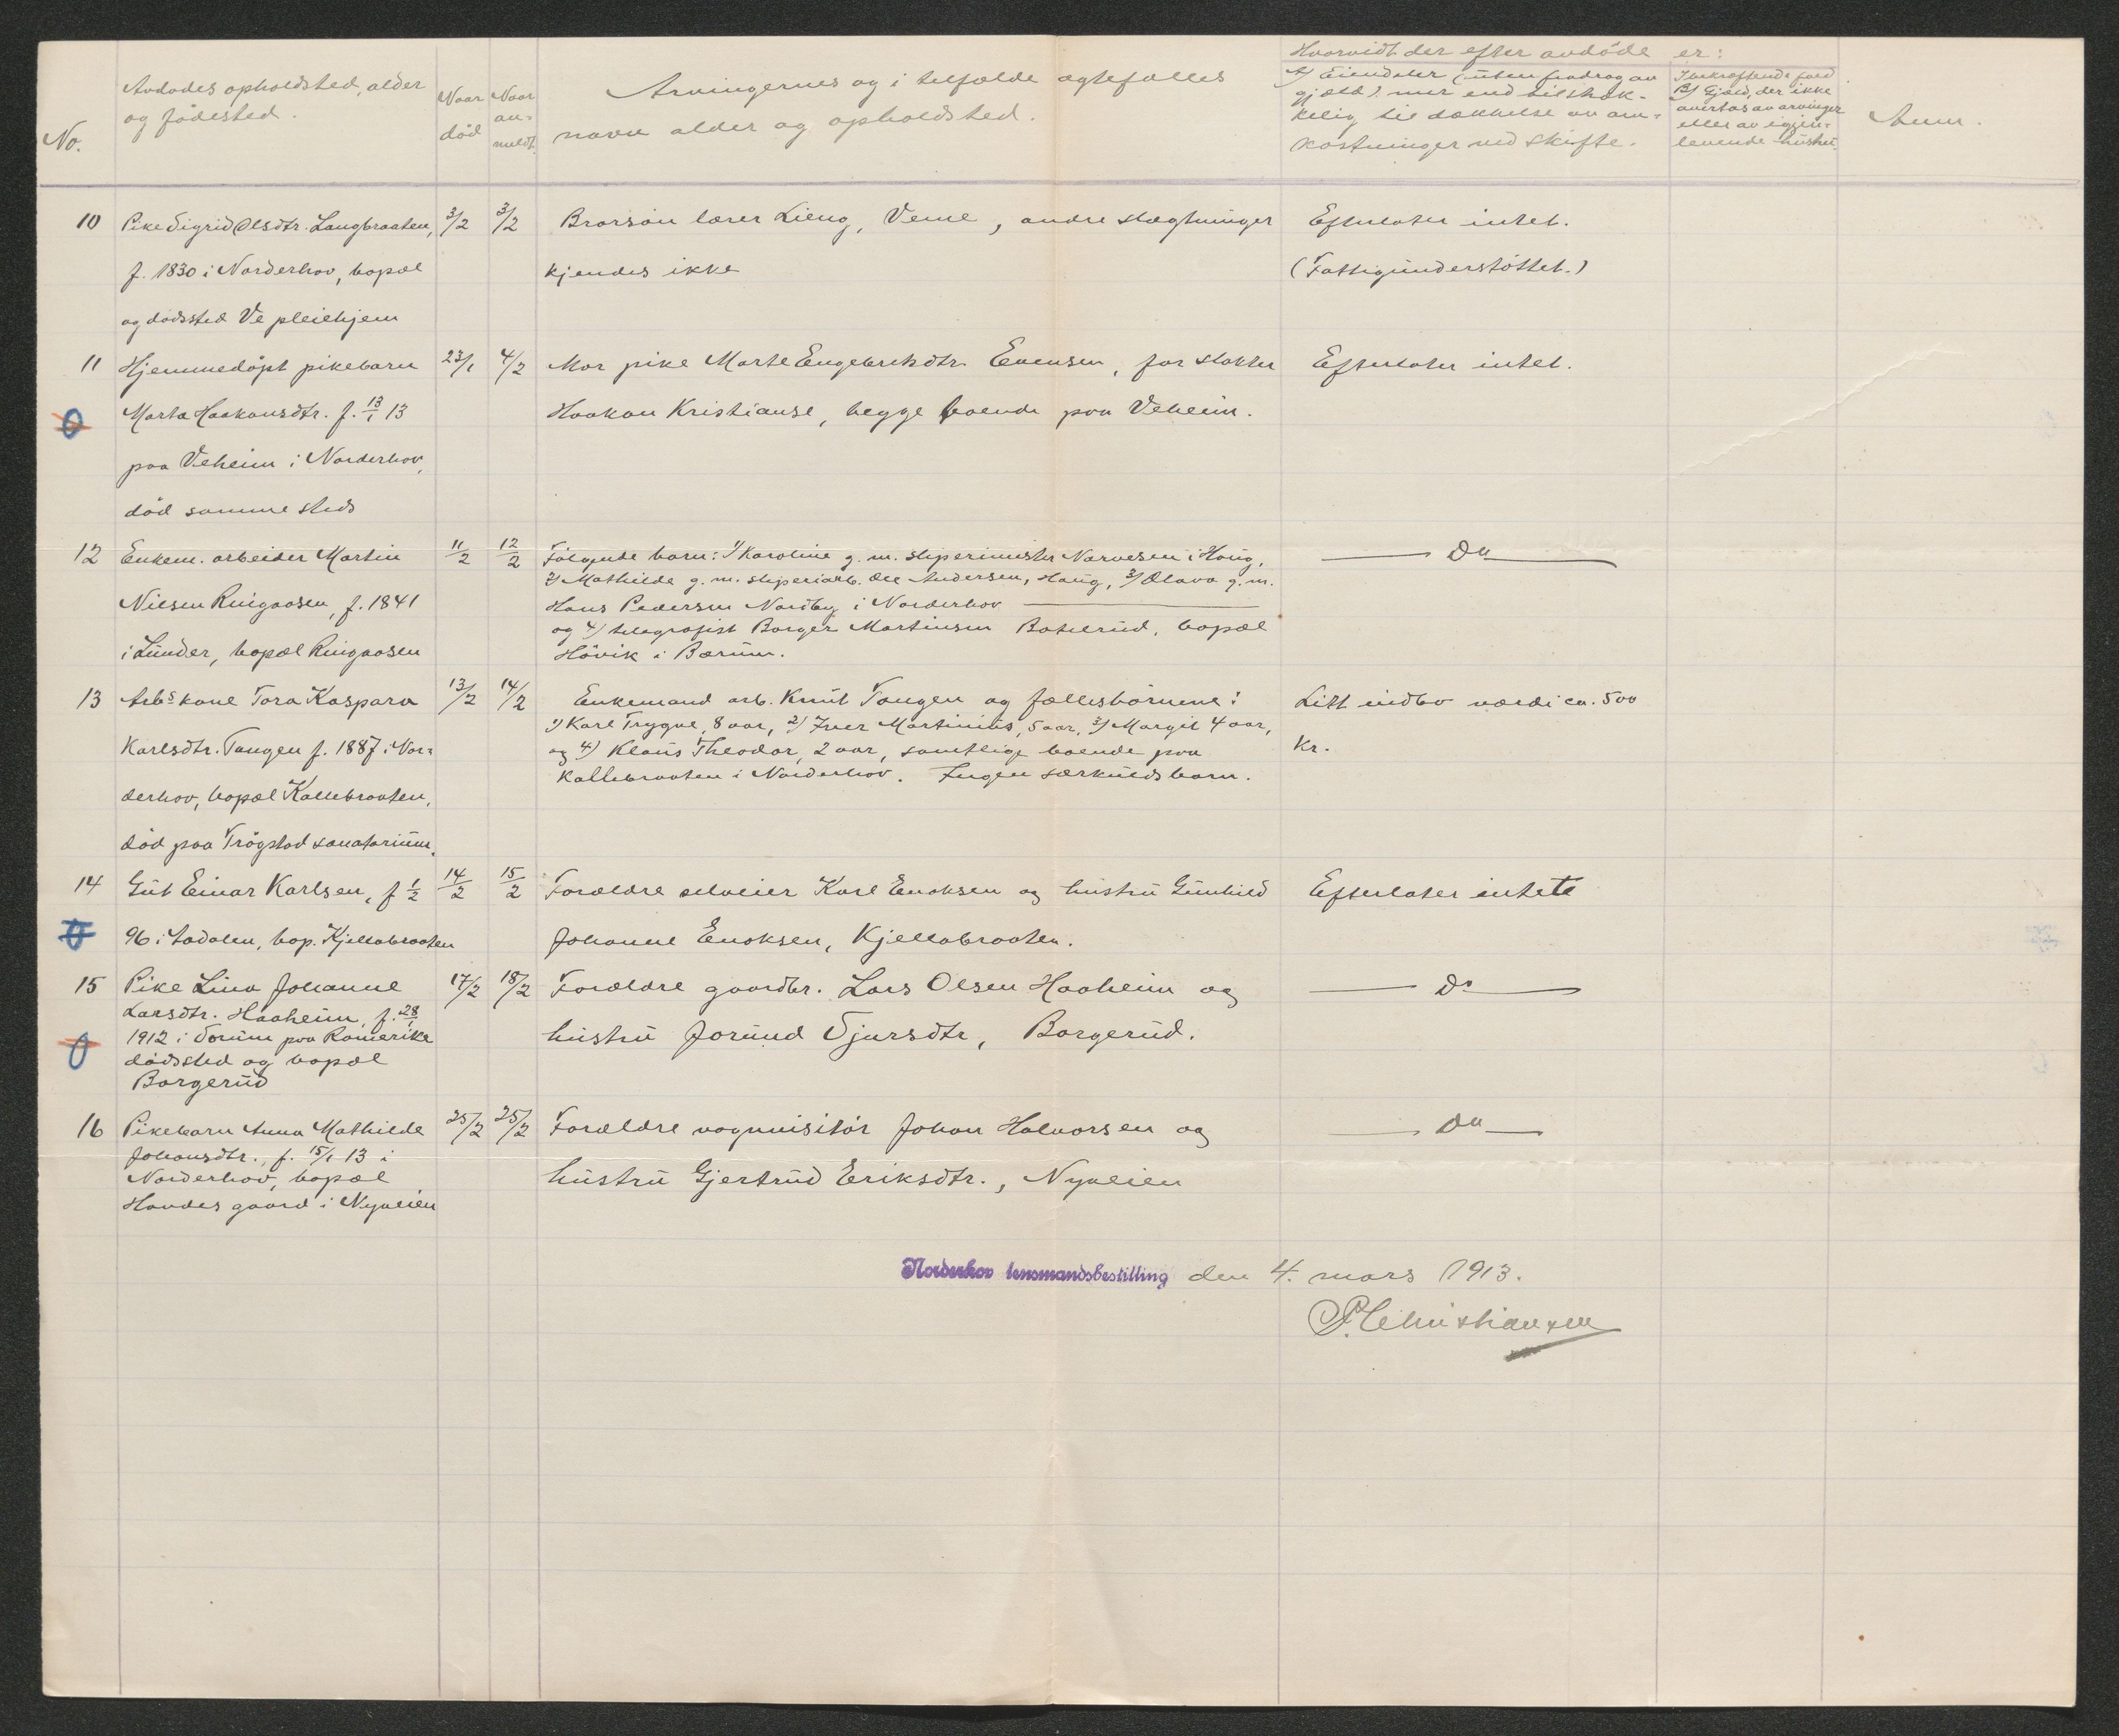 Hvorvidt der efter avdöde er:
No.
Avdödes opholdsted, alder
og födested.
Naar
död
Naar
an-
meldt.
Arvingernes og i tilfælde ægtefælles
navn alder og opholdsted.
A) Eiendeler (uten fradrag av
gjæld) mer end tilstræk-
kelig til dækkelse av om-
kostninger ved skifte.
I bekræftende fald
B) Gjæld, der ikke
overtas av arvinger
eller av igjen-
levende hustru.
Anm.
10 Pike Sigrid Olsdtr. Langbraaten, 3/2 3/2 Brorsön lærer Lieng, Veme, andre slægtninger Efterlater intet.
f. 1830 i Norderhov, bopæl kjendes ikke (Fattigunderstöttet.)
og dödssted Ve pleiehjem
11 Hjemmedöpt pikebarn 23/1 4/2 Mor pike Marte Engebretsdtr. Evensen, far slakter Efterlater intet.
Marta Haakonsdtr. f. 13/1 13 Haakon Kristianse, begge boende paa Veheim.
paa Veheim i Norderhov,
död samme steds
12 Enkem. arbeider Martin 11/2 12/2 Fölgende barn: 1) Karoline g. m. sliperimester Narvesen i Haug, Do
2) Mathilde g. m. sliperiarb. Ole Andersen, Haug, 3) Olava g. m.
Nilsen Ringaasen, f. 1841 Hans Pedersen Nordby i Norderhov
og 4) telegrafist Borger Martinsen Botilrud, bopæl
i Lunder, bopæl Ringaasen Hövik i Bærum.
13 Arbs kone Tora Kaspara 13/2 14/2 Enkemand arb. Knut Tangen og fællesbörnene: Litt indbo værdi ca. 500
1) Karl Trygve, 8 aar, 2) Iver Martinius, 5 aar, 3) Margit 4 aar,
Karlsdtr. Tangen f. 1887 i Nor- og 4) Klaus Theodor, 2 aar, samtlige boende paa kr.
Kallebraaten i Norderhov. Ingen særkuldsbarn.
derhov, bopæl Kallebraaten,
död paa Trögstad sanatorium.
14 Gut Einar Karlsen, f 1/2 14/2 15/2 Forældre selveier Karl Enoksen og hustru Gunhild Efterlater intet
96 i Aadalen, bop. Kjellabraaten Johanne Enoksen, Kjellabraaten.
15 Pike Lina Johanne 17/2 18/2 Forældre gaardbr. Lars Olsen Haaheim og Do
Larsdtr. Haaheim, f. 28/1
1912 i Sörum paa Romerike hustru Jorund Sjursdtr, Borgerud.
dödssted og bopæl
Borgerud
16 Pikebarn Anna Mathilde 25/2 25/2 Forældre vognvisitör Johan Halvorsen og Do
Johansdtr., f. 15/1 13 i
Norderhov, bopæl hustru Gjertrud Eriksdtr., Nyveien
Hovdes gaard i Nyveien
Norderhov lensmandsbestilling den 4. mars 1913.
P. Christiansen